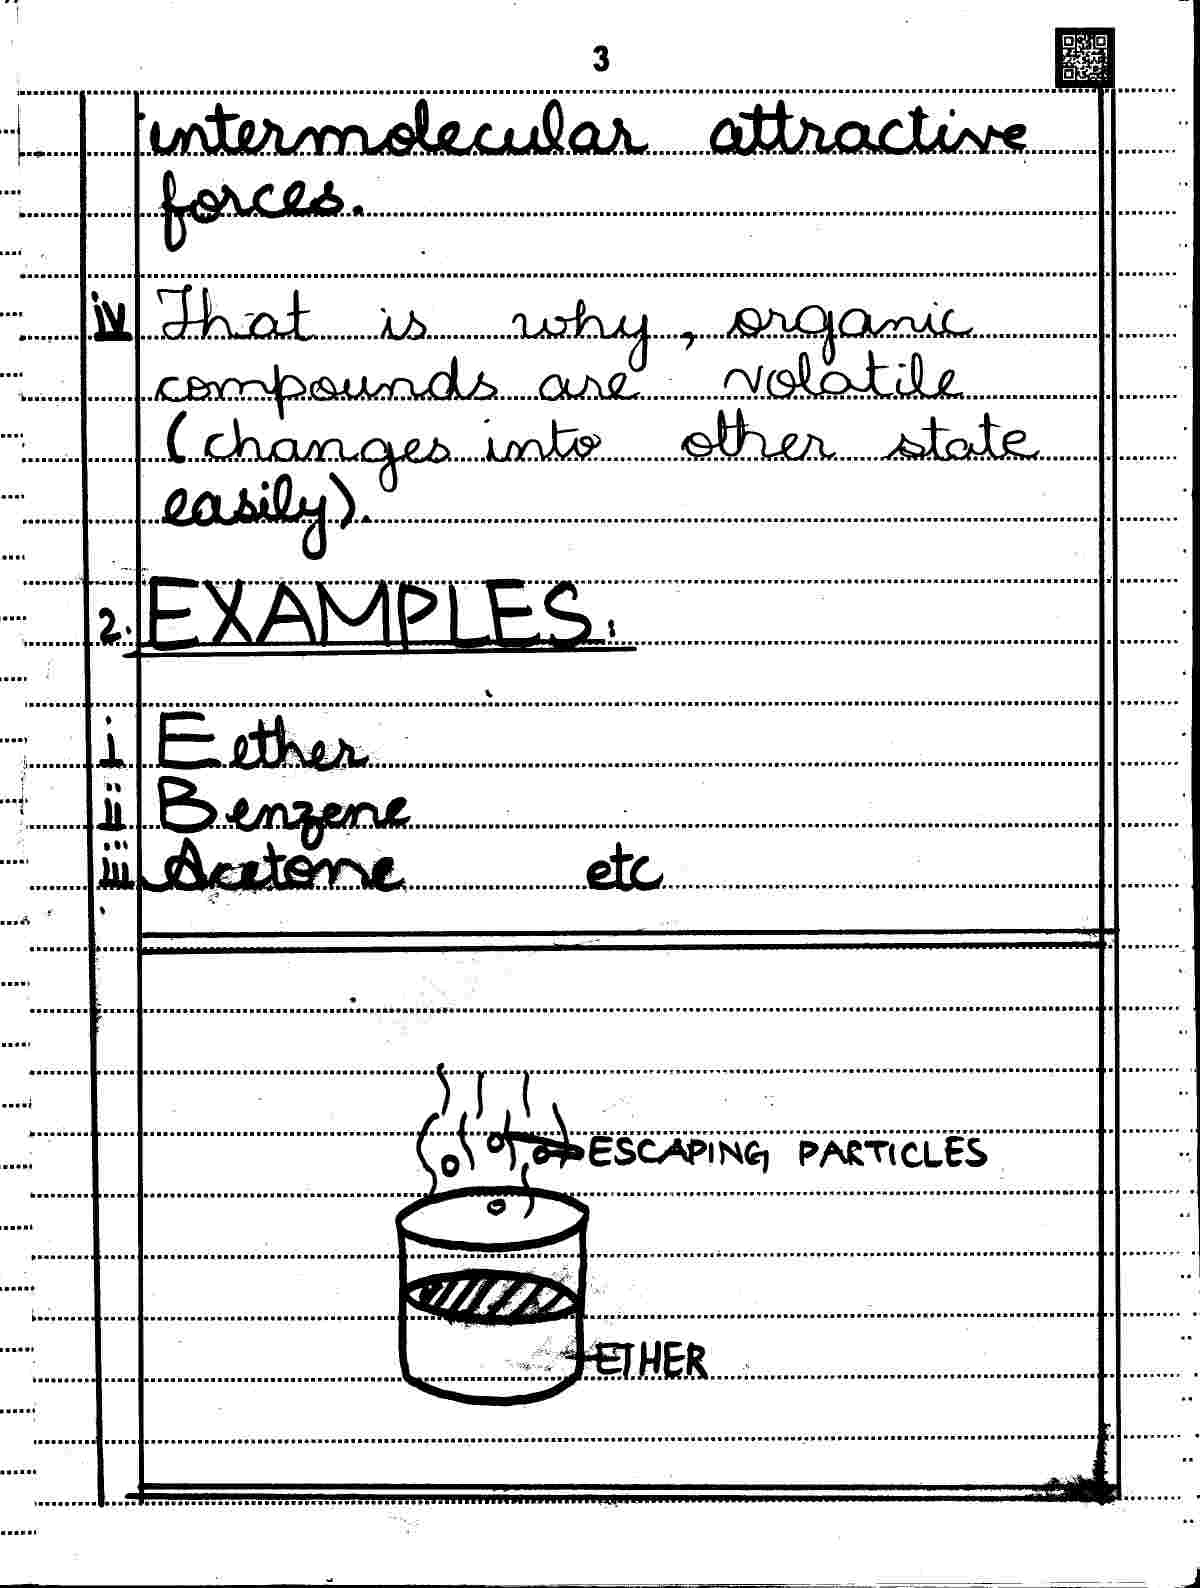 3
intermolecular attractive
forces.
iv That is why, organic
compounds are volatile
(changes into other state
easily).
2. EXAMPLES:
i Eether
ii Benzene
iii Acetone etc
ESCAPING PARTICLES
ETHER